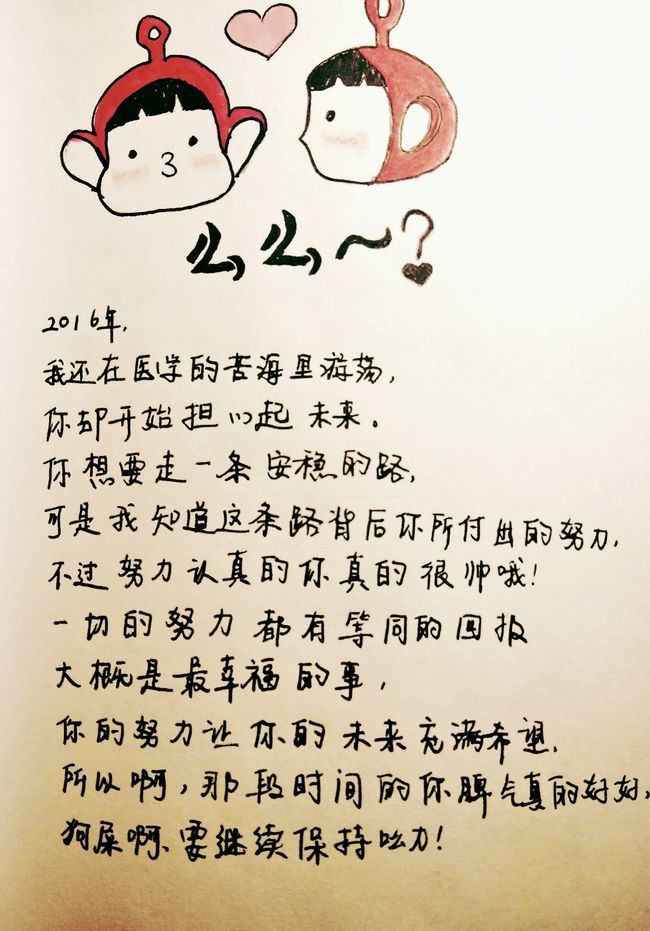 么,么,~?
2016年,
我还在医学的苦海里游荡,
你却开始担心起未来。
你想要走一条安稳的路,
可是我知道这条路背后你所付出的努力,
不过努力认真的你真的很帅哦!
一切的努力都有等同的回报
大概是最幸福的事,
你的努力让你的未来充满希望,
所以啊,那段时间的你脾气真的好好,
狗屎啊、要继续保持呦!